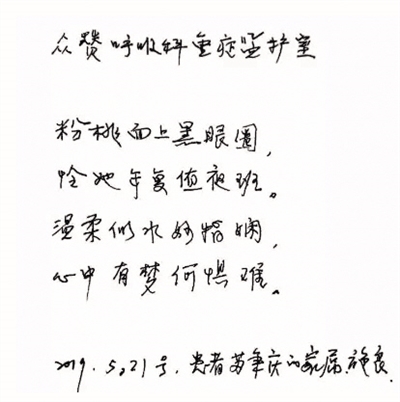 众赞呼吸科重症监护室
粉桃面上黑眼圈,
怜她年复值夜班。
温柔似水妙指娴,
心中有梦何惧难。
2019.5.21号.患者苏肇庆的家属.施良.